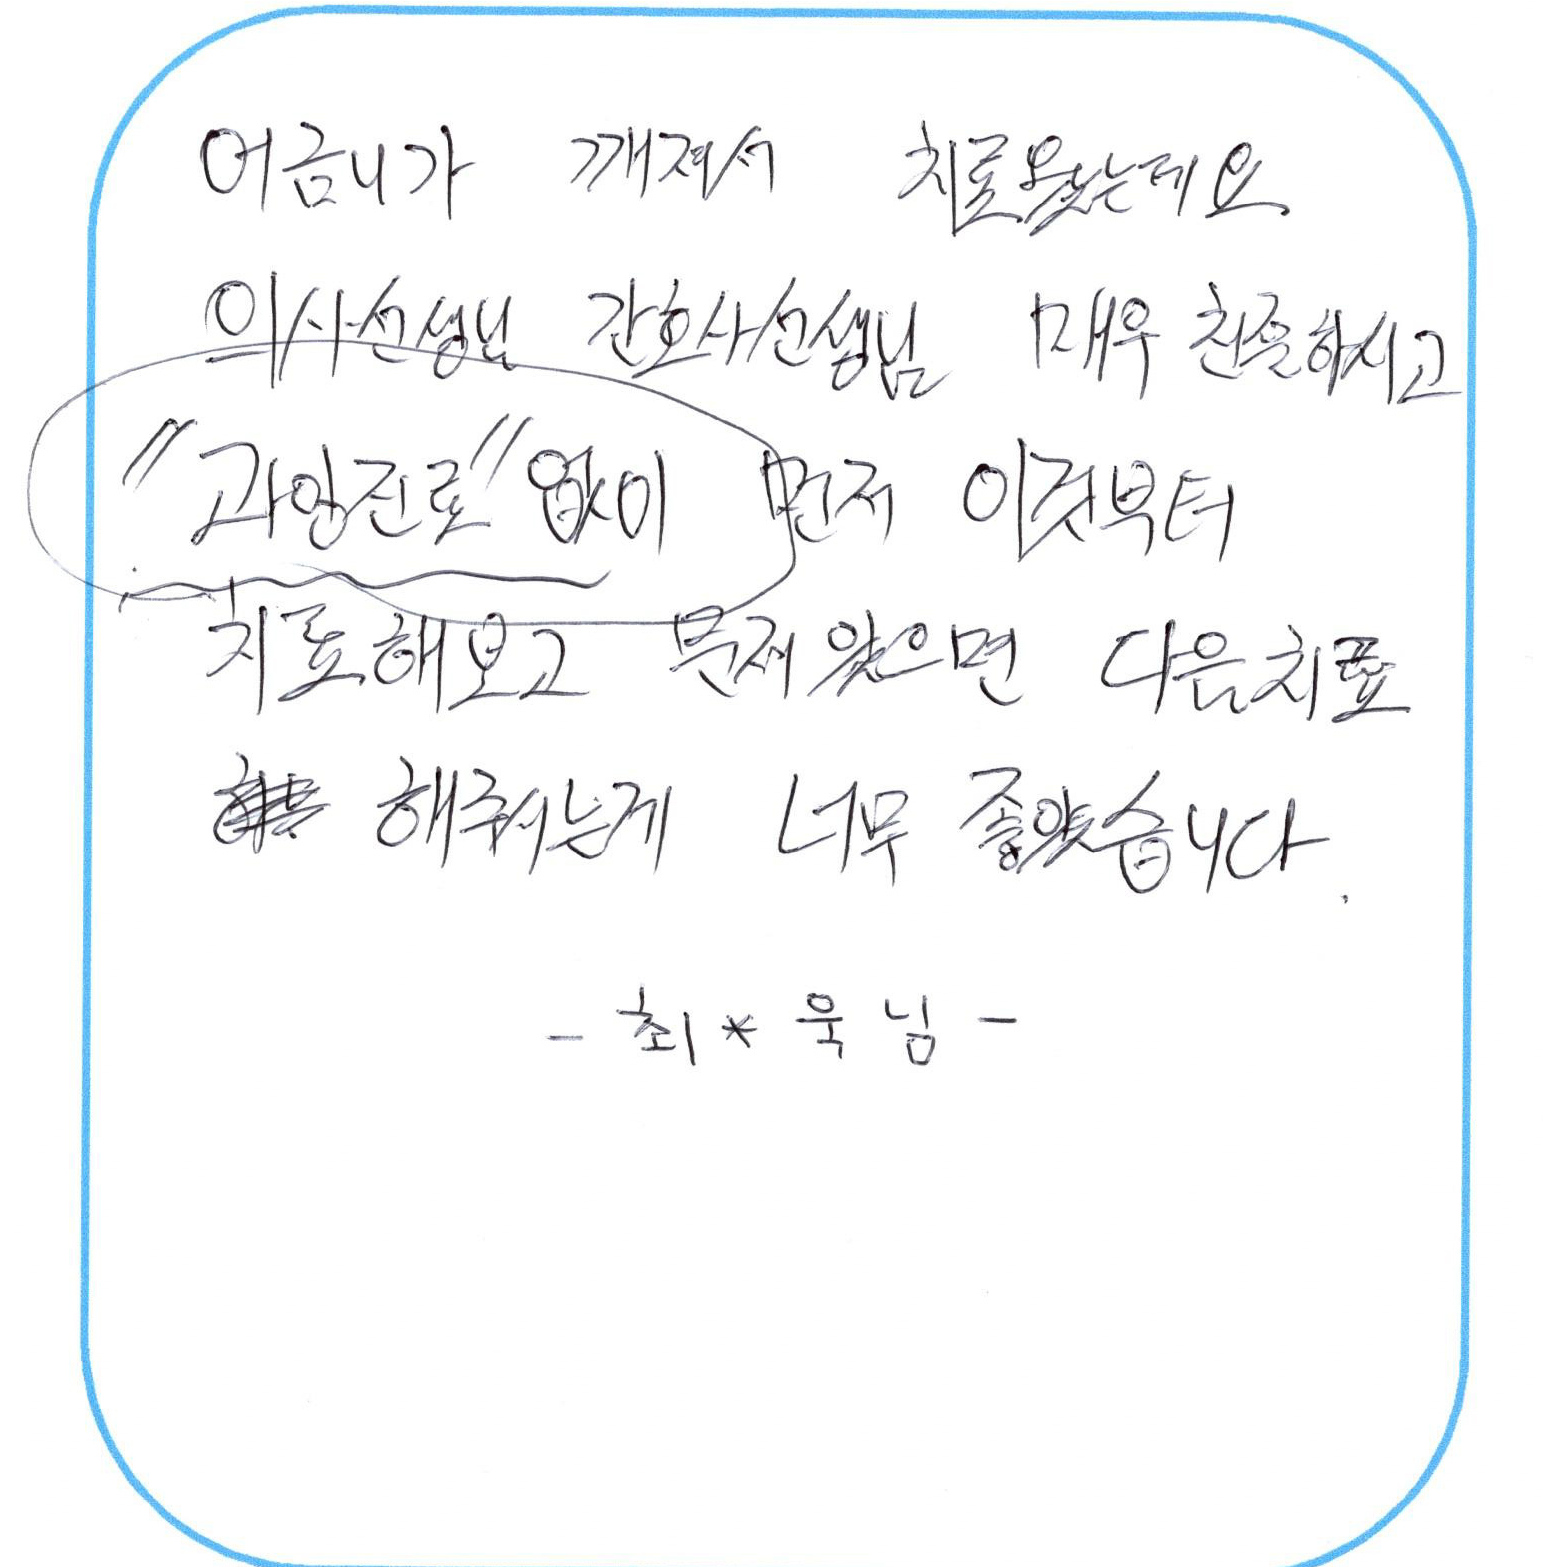 어금니가 깨져서 치료왔는데요
의사선생님 간호사선생님 매우 친절하시고
"과잉진료" 없이 먼저 이것부터
치료해보고 문제있으면 다음치료
해주시는게 너무 좋았습니다.
- 최*욱님 -